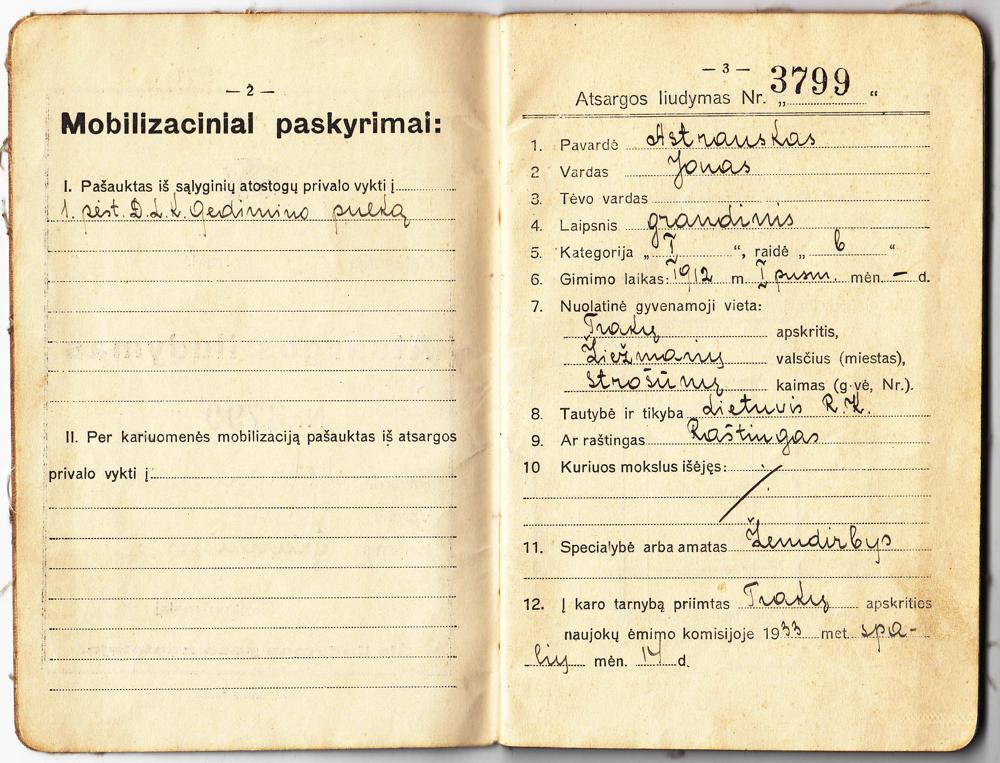 — 2 —
Mobilizaciniai paskyrimai:
I. Pašauktas iš sąlyginių atostogų privalo vykti į
1. pėst. D.L.K. Gedimino pulką
II. Per kariuomenės mobilizaciją pašauktas iš atsargos
privalo vykti į
— 3 —
Atsargos liudymas Nr. „3799“
1. Pavardė Astrauskas
2 Vardas Jonas
3. Tėvo vardas
4. Laipsnis grandinis
5. Kategorija „I“, raidė „b“
6. Gimimo laikas: 1912 m. I pusm. mėn. – d.
7. Nuolatinė gyvenamoji vieta:
Trakų apskritis,
Žiežmarių valsčius (miestas),
Strošūnų kaimas (g-vė, Nr.).
8. Tautybė ir tikyba Lietuvis R.K.
9. Ar raštingas Raštingas
10 Kuriuos mokslus išėjęs:
11. Specialybė arba amatas Žemdirbys
12. Į karo tarnybą priimtas Trakų apskrities
naujokų ėmimo komisijoje 1933 met. spa-
lių mėn. 14 d.